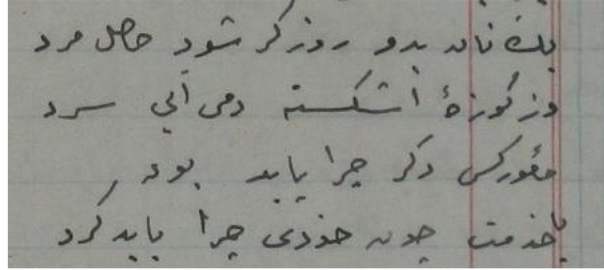 یک نان بدو روز گر شود حاصل مرد
وز کوزهٔ اشکسته دمی آبی سرد
مأمور کس دگر چرا باید بود
یا خدمت چون خودی چرا باید کرد